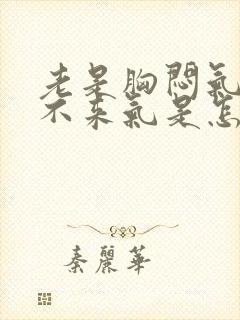 老是胸悶氣
不來氣是怎
秦麗華